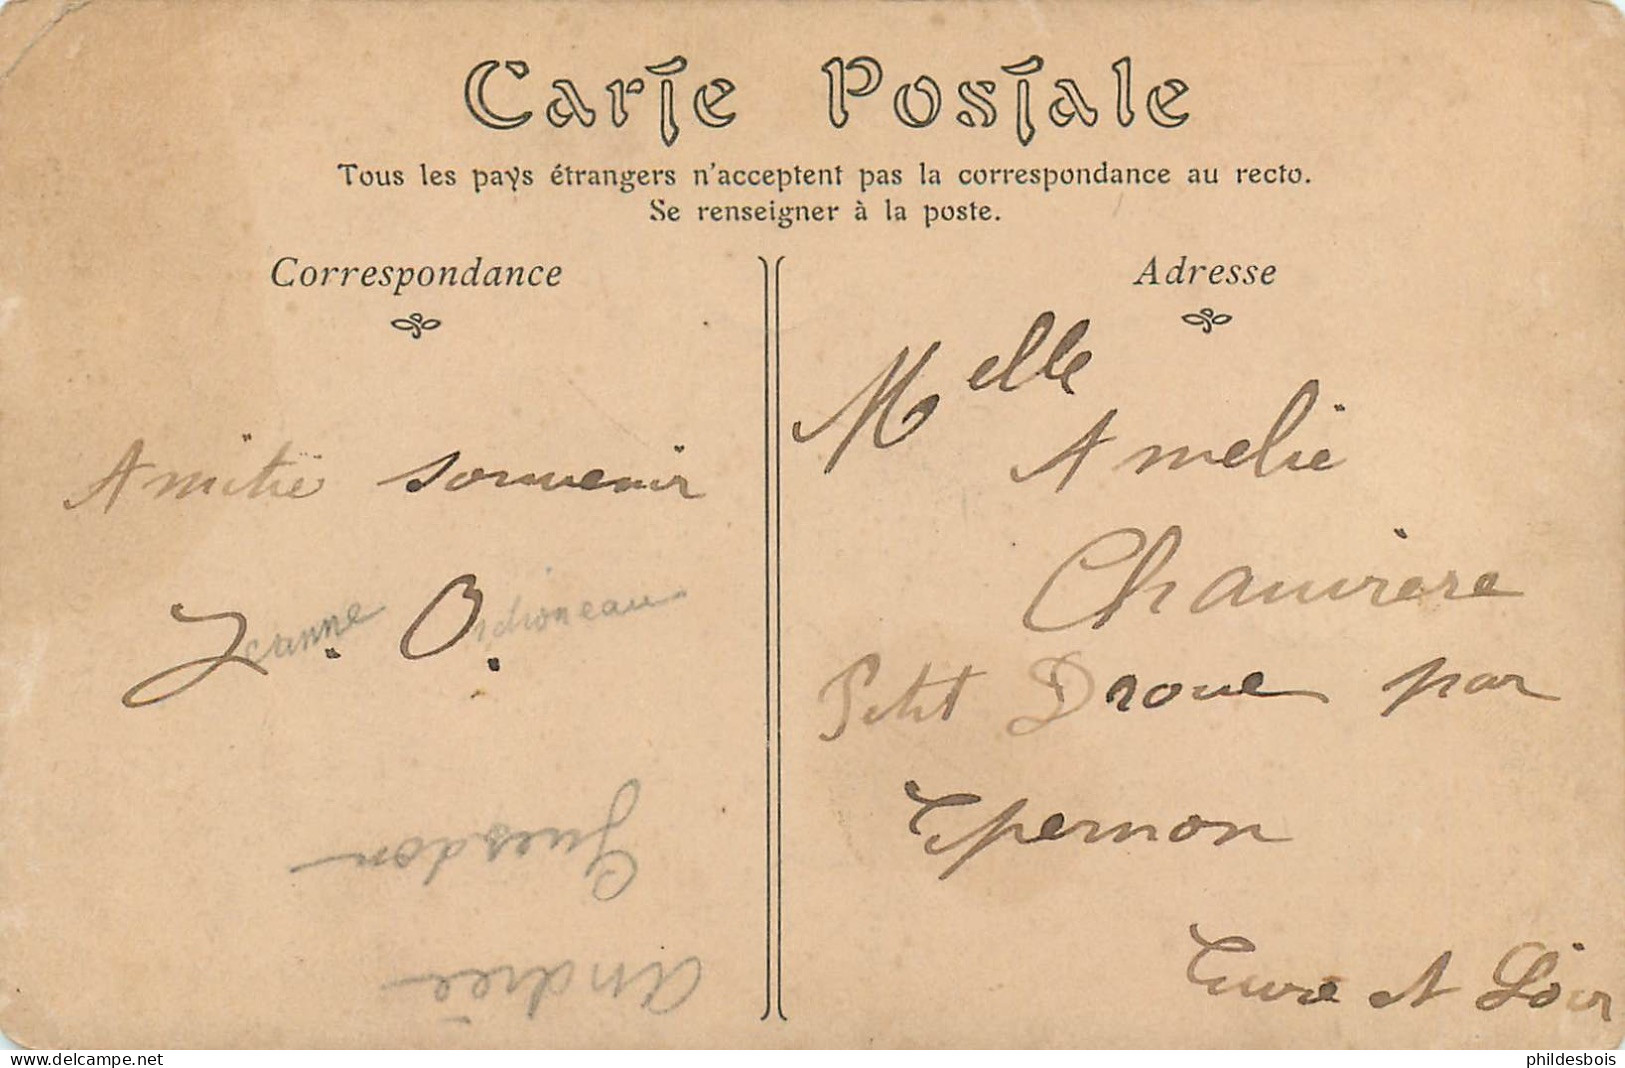 Carte Postale
Tous les pays étrangers n'acceptent pas la correspondance au recto.
Se renseigner à la poste.
Correspondance
Adresse
Amitié souvenir
Jeanne. O.
Andrée
Guesdon
Melle
Amelie
Chauviere
Petit Droue par
Epernon
Eure et Loir
www.delcampe.net
phildesbois